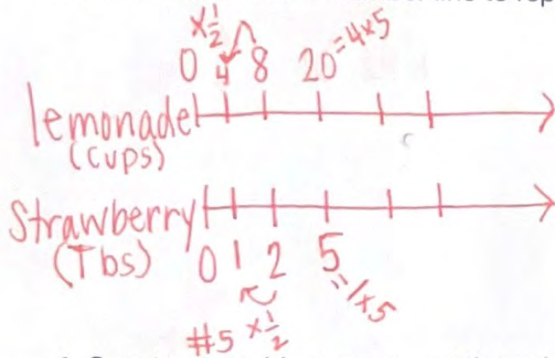 ×1/2
0 4 8 20 =4×5
lemonade
(cups)
Strawberry
(Tbs) 0 1 2 5 =1×5
#5 ×1/2